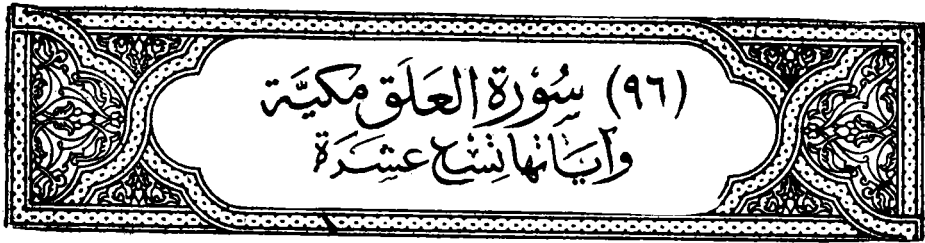 (٩٦) سُورَة العَلَق مَكيَّة
وَآيَاتُهَا تِسْع عَشَرَة